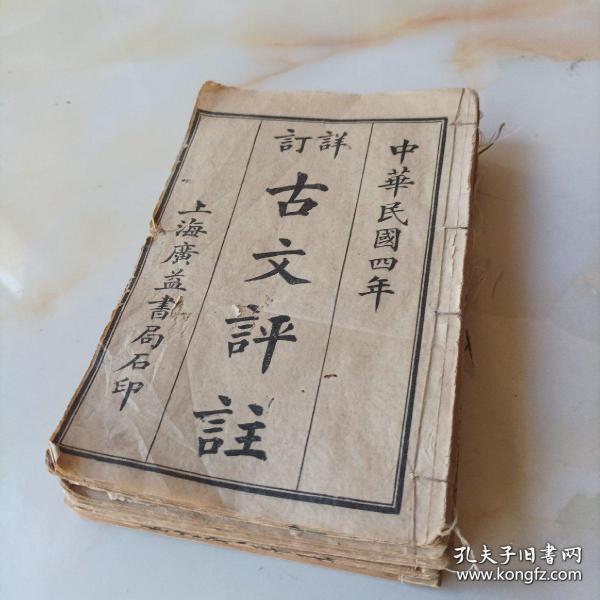 中華民國四年
詳訂
古文評註
上海廣益書局石印
孔夫子旧書网
www.kongfz.com